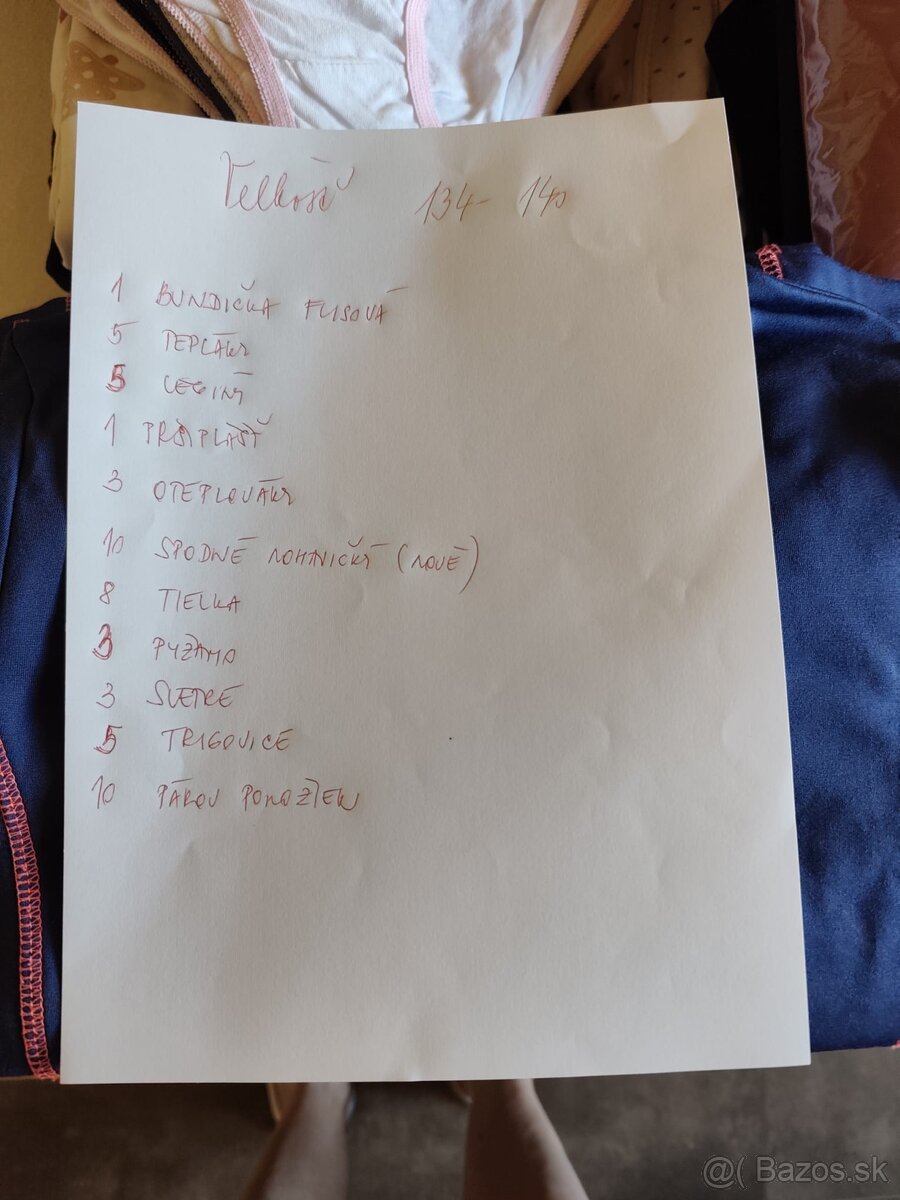 Veľkosť 134- 140
1 BUNDIČKA FLISOVÁ
5 TEPLÁKY
5 LEGÍNY
1 PRŠIPLÁŠŤ
3 OTEPLOVÁKY
10 SPODNÉ NOHAVIČKY (NOVÉ)
8 TIELKA
3 PYŽAMO
3 SVETRE
5 TRIGOVICE
10 PÁROV PONOŽIEK
@( Bazos.sk